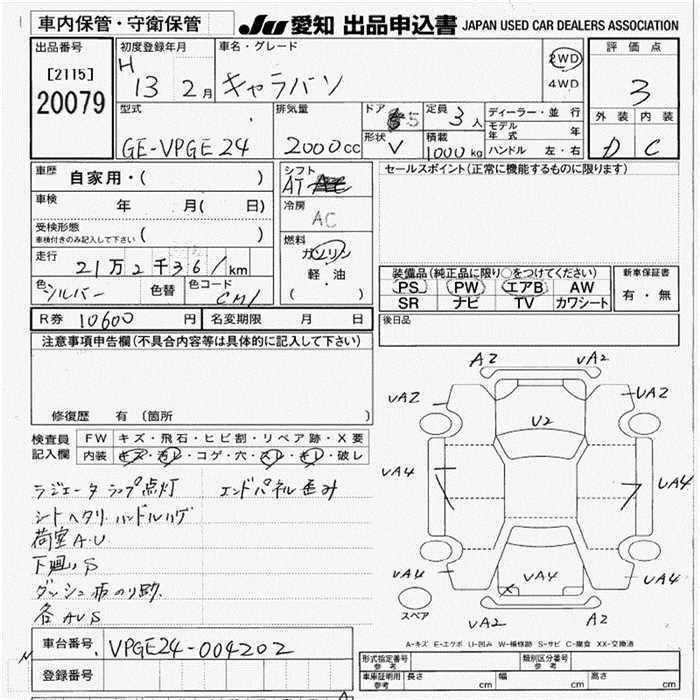 車内保管・守衛保管
JU 愛知 出品申込書 JAPAN USED CAR DEALERS ASSOCIATION
出品番号
[2115]
20079
初度登録年月
H 13 2月
車名・グレード
キャラバン
2WD
4WD
評価点
3
外装 内装
D C
型式
GE-VPGE24
排気量
2000cc
ドア
5
形状
V
定員
3人
積載
1000kg
ディーラー・並行
モデル年式 年
ハンドル 左・右
車歴
自家用・( )
車検
年 月( 日)
受検形態
車検付きのみ記入して下さい
( )
走行
21万2千361km
色
シルバー
色替
色コード
CM1
シフト
AT
冷房
AC
燃料
ガソリン
軽・油
( )
セールスポイント(正常に機能するものに限ります)
装備品(純正品に限り○をつけてください)
PS PW エアB AW
SR ナビ TV カワシート
新車保証書
有・無
R券 10600円
名変期限 月 日
後日品
注意事項申告欄(不具合内容等は具体的に記入して下さい)
修復歴 有(箇所 )
検査員記入欄
FW キズ・飛石・ヒビ割・リペア跡・X要
内装 キズ・汚レ・コゲ・穴・スレ・キレ・破レ
ラジエータ ランプ点灯 エンドパネル歪み
シートヘタリ ハンドルハゲ
荷室A.U
下廻りS
ダッシュ 布のり跡
各AUS
A2 UA2
UA2 UA2
U2
UA4 UA4
UA4
UA4 UA4
スペア
UA2 A2
A-キズ E-エクボ U-凹み W-補修跡 S-サビ C-腐食 XX-交換済
車台番号
VPGE24-004202
登録番号
形式指定番号
参考
類別区分番号
参考
車庫証明用
参考
長さ cm
幅 cm
高さ cm